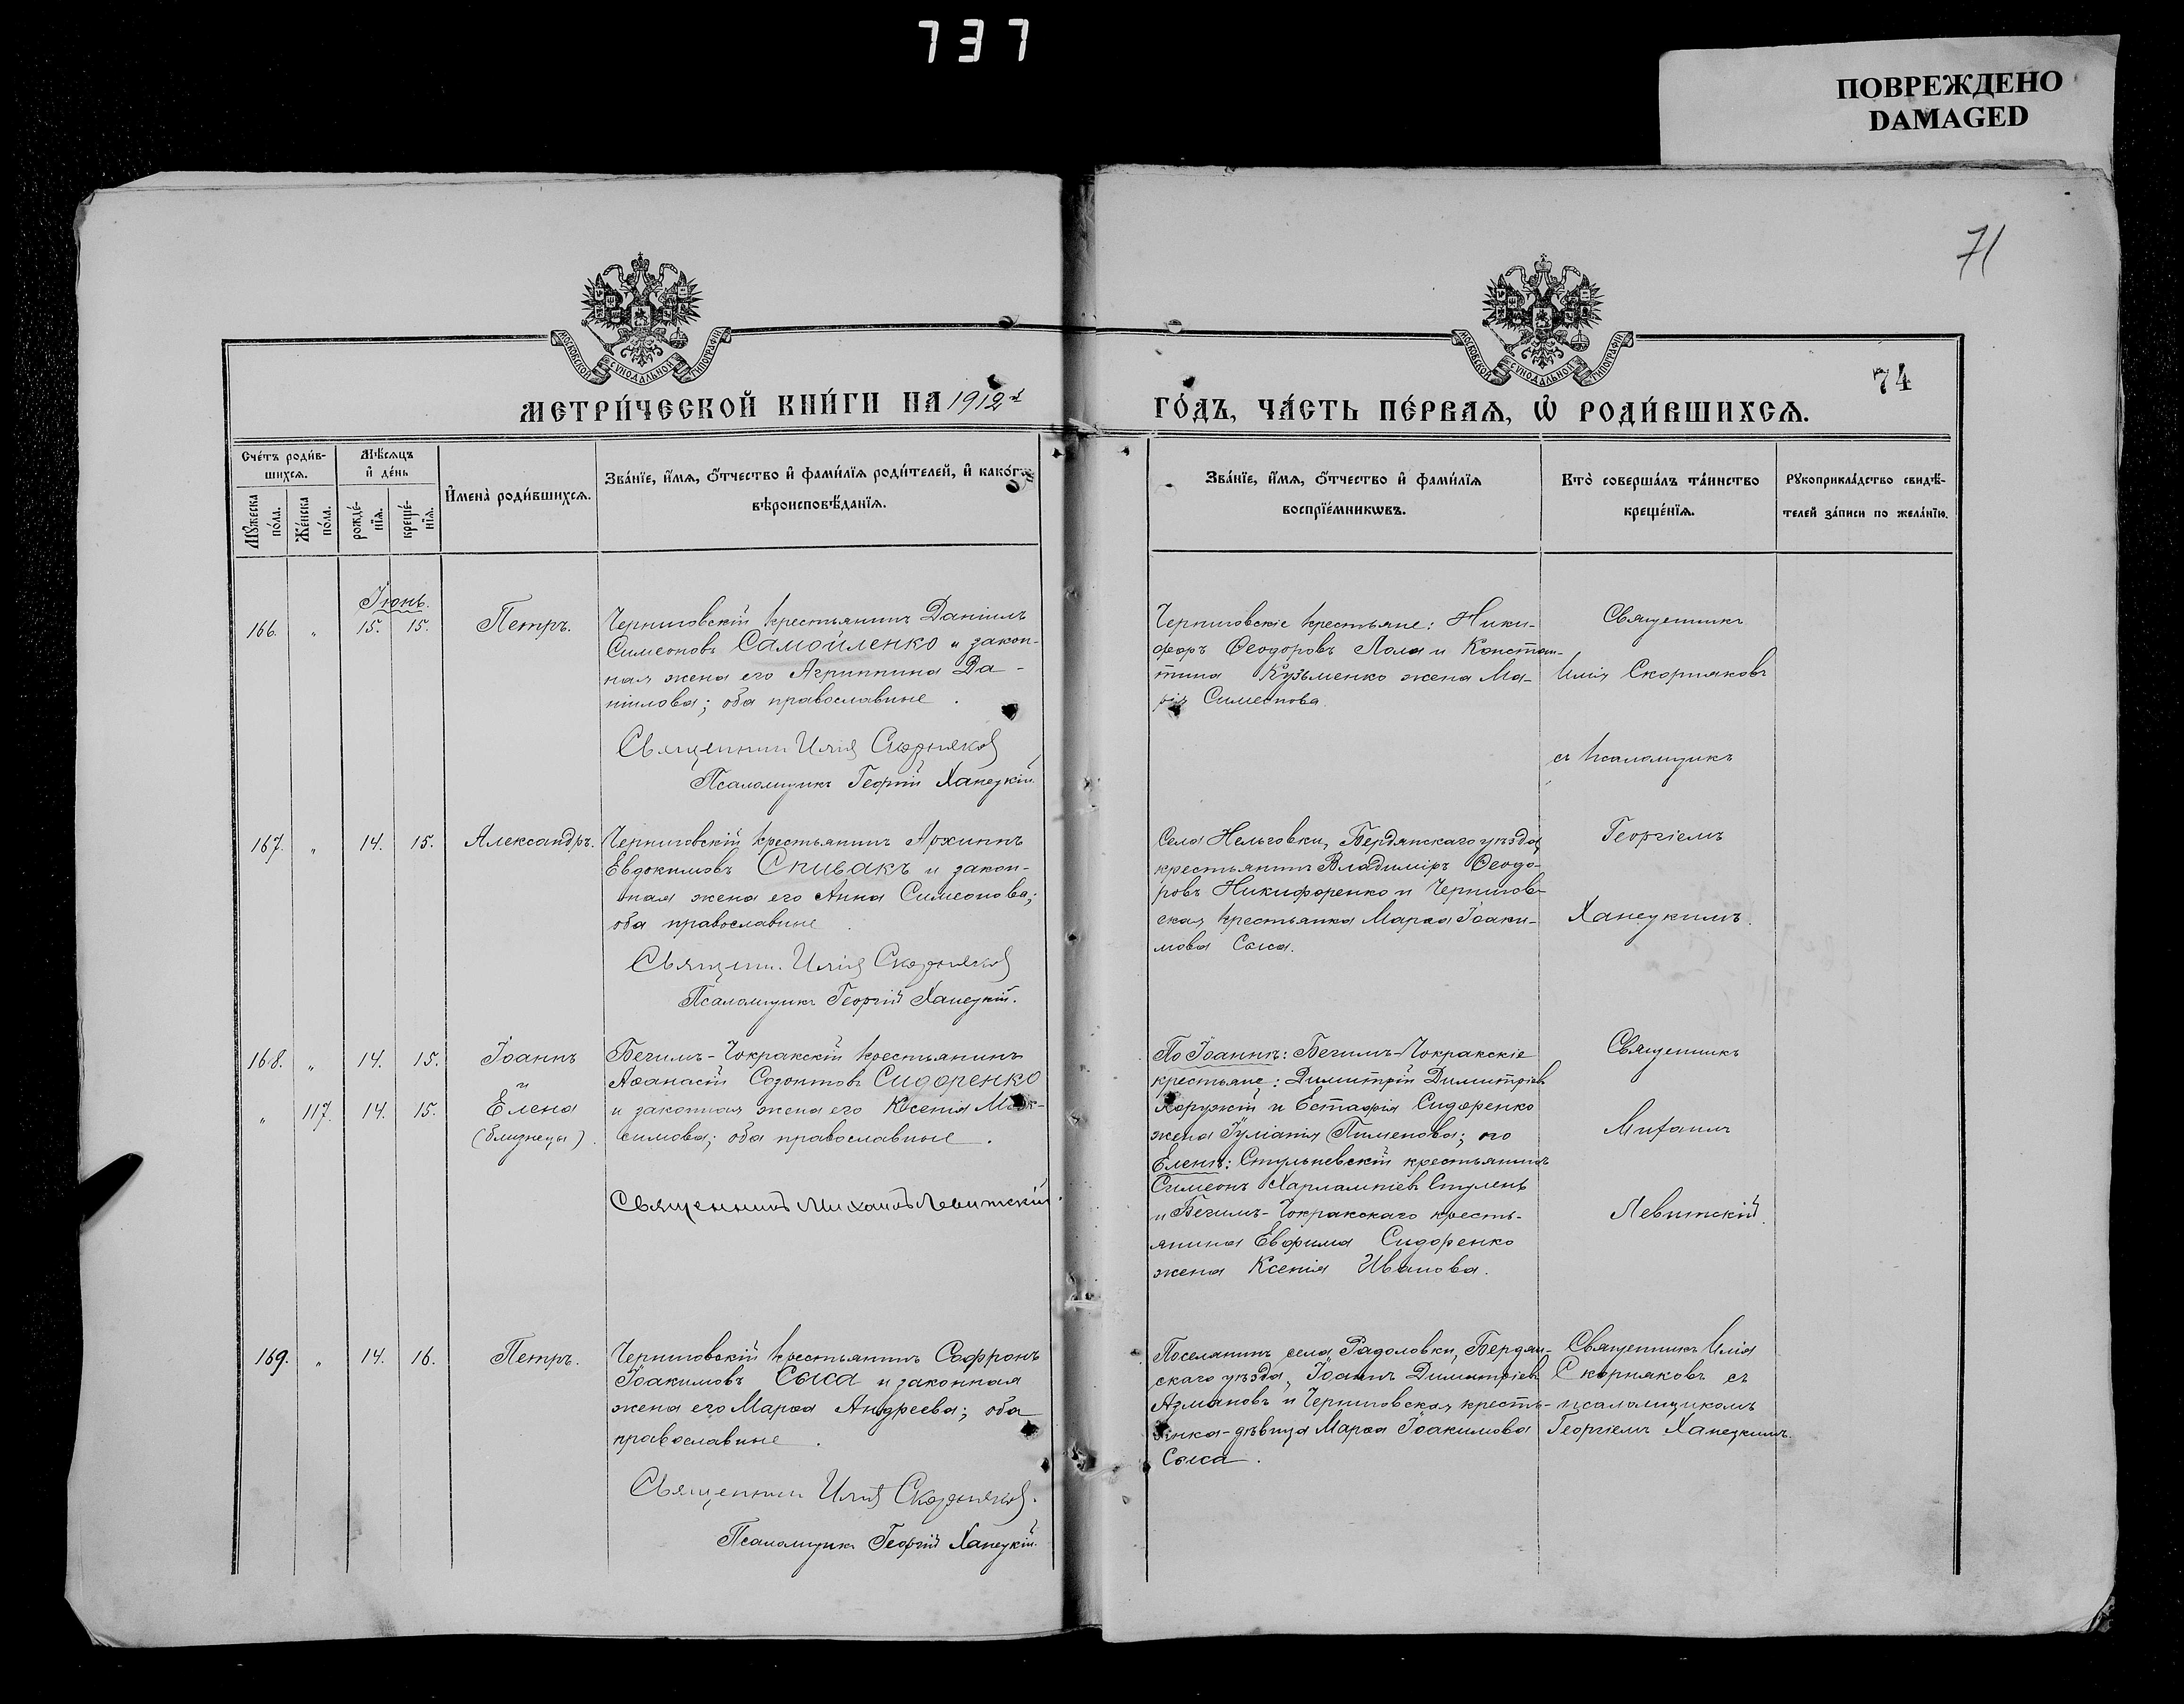 737
ПОВРЕЖДЕНО
DAMAGED
71
74
МОСКОВСКОЙ СѴНОДАЛЬНОЙ ТИПОГРАФІИ
МОСКОВСКОЙ СѴНОДАЛЬНОЙ ТИПОГРАФІИ
МЕТРИ́ЧЕСКОЙ КНИ́ГИ НА 1912 г.
ГО́ДЪ, ЧА́СТЬ ПЕ́РВАѦ, Ѡ҆ РОДИ́ВШИХСѦ.
Сче́тъ роди́в-
шихсѧ.
Мѣ́сѧцъ
и҆ де́нь
Мꙋ́жеска
по́ла.
Же́нска
по́ла.
рожде́-
нїѧ.
креще́-
нїѧ.
И҆мена̀ роди́вшихсѧ.
Зва́нїе, и҆́мѧ, ѻ҆́тчество и҆ фами́лїѧ роди́телей, и҆ како́гѡ
вѣроисповѣ́данїѧ.
Зва́нїе, и҆́мѧ, ѻ҆́тчество и҆ фами́лїѧ
воспрїе́мникѡвъ.
Кто̀ соверша́лъ та́инство
креще́нїѧ.
Рꙋкоприкла́дство свидѣ́-
телей за́писи по жела́нїю.
Іюнь.
166. " 15. 15. Петръ.
Черниговскій крестьянинъ Даніилъ
Симеоновъ Самойленко и закон-
ная жена его Агриппина Да-
ніилова; оба православные.
Священникъ Илія Скорняковъ
Псаломщикъ Георгій Ханецкій.
Черниговскіе крестьяне: Ники-
форъ Ѳеодоровъ Лола и Констан-
тина Кузьменко жена Ма-
рія Симеонова.
Священникъ
Илія Скорняковъ
съ псаломщик
Георгіемъ
Ханецкимъ.
167. " 14. 15. Александръ.
Черниговскій крестьянинъ Архиппъ
Евдокимовъ Спивакъ и закон-
ная жена его Анна Симеонова;
оба православные.
Священ. Илія Скорняковъ
Псаломщикъ Георгій Ханецкій.
Села Нельговки, Бердянскаго уѣзда,
крестьянинъ Владиміръ Ѳеодо-
ровъ Никифоренко и Чернигов-
ская крестьянка Марѳа Іоаки-
мова Сыса.
168. " 14. 15. Іоаннъ
и
" 117. 14. 15. Елена
(близнецы).
Бегимъ-Чокракскій крестьянинъ
Аѳанасій Созонтовъ Сидоренко
и законная жена его Ксенія Мак-
симова; оба православные.
Священникъ Михаилъ Левитскій.
По Іоаннѣ: Бегимъ-Чокракскіе
крестьяне: Димитрій Димитріевъ
Хоружій и Естафія Сидоренко
жена Іуліанія Пименова; по
Еленѣ: Стульневскій крестьянинъ
Симеонъ Харлампіевъ Стулень
и Бегимъ-Чокракскаго кресть-
янина Евфима Сидоренко
жена Ксенія Иванова.
Священникъ
Михаилъ
Левитскій.
169. " 14. 16. Петръ.
Черниговскій крестьянинъ Софронъ
Іоакимовъ Сыса и законная
жена его Марѳа Андреева; оба
православные.
Священникъ Илія Скорняковъ.
Псаломщикъ Георгій Ханецкій.
Поселянинъ села Радоловки, Бердян-
скаго уѣзда, Іоаннъ Димитріевъ
Азмановъ и Черниговская кресть-
янка-дѣвица Марѳа Іоакимова
Сыса.
Священникъ Илія
Скорняковъ съ
псаломщикомъ
Георгіемъ Ханецкимъ.